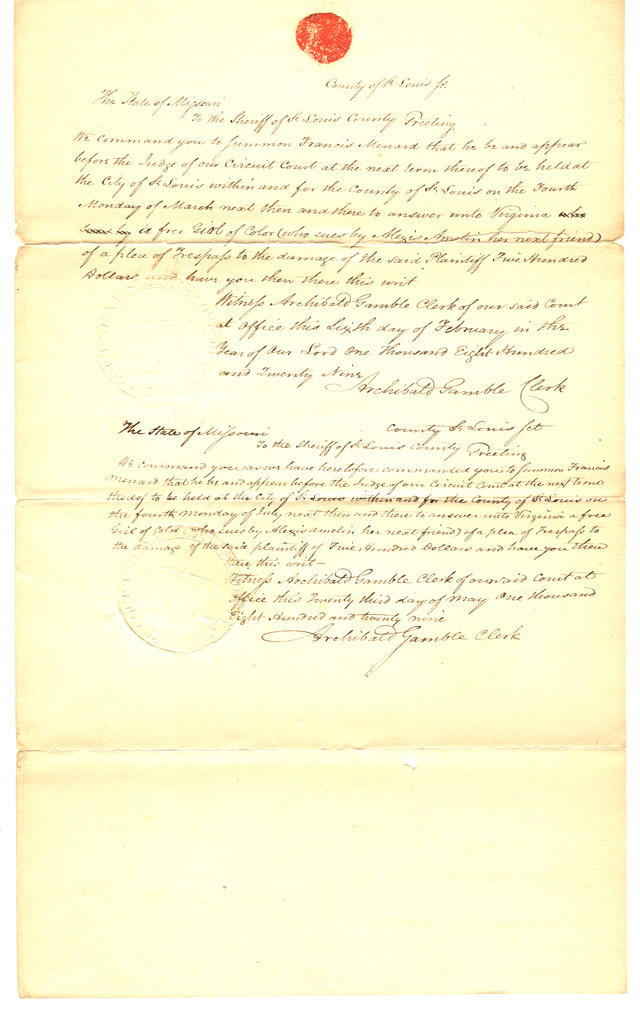 County of St Louis Sc.
The State of Missouri
To the Sheriff of St Louis County Greeting
We command you to summon Francis Menard that he be and appear
before the Judge of our Circuit Court at the next term thereof to be held at
the City of St Louis within and for the County of St Louis on the Fourth
Monday of March next then and there to answer unto Virginia who
sues by a free Girl of Color (who sues by Alexis Amelin her next friend)
of a plea of Trespass to the damage of the said Plaintiff Five Hundred
Dollars and have you then there this writ
Witness Archibald Gamble Clerk of our said Court
at office this Sixth day of February in the
Year of Our Lord One Thousand Eight Hundred
and Twenty Nine
Archibald Gamble Clerk
The State of Missouri County St Louis Sct
To the Sheriff of St Louis County Greeting
We command you as we have heretofore commanded you to summon Francis
Menard that he be and appear before the Judge of our Circuit Court at the next term
thereof to be held at the City of St Louis within and for the County of St Louis on
the fourth Monday of July next then and there to answer unto Virginia a free
Girl of Color (who sues by Alexis amelin her next friend) of a plea of Trespass to
the damage of the said plaintiff of Five Hundred Dollars and have you then
there this writ—
Witness Archibald Gamble Clerk of our said Court at
office this Twenty third day of May One thousand
Eight Hundred and twenty nine
Archibald Gamble Clerk